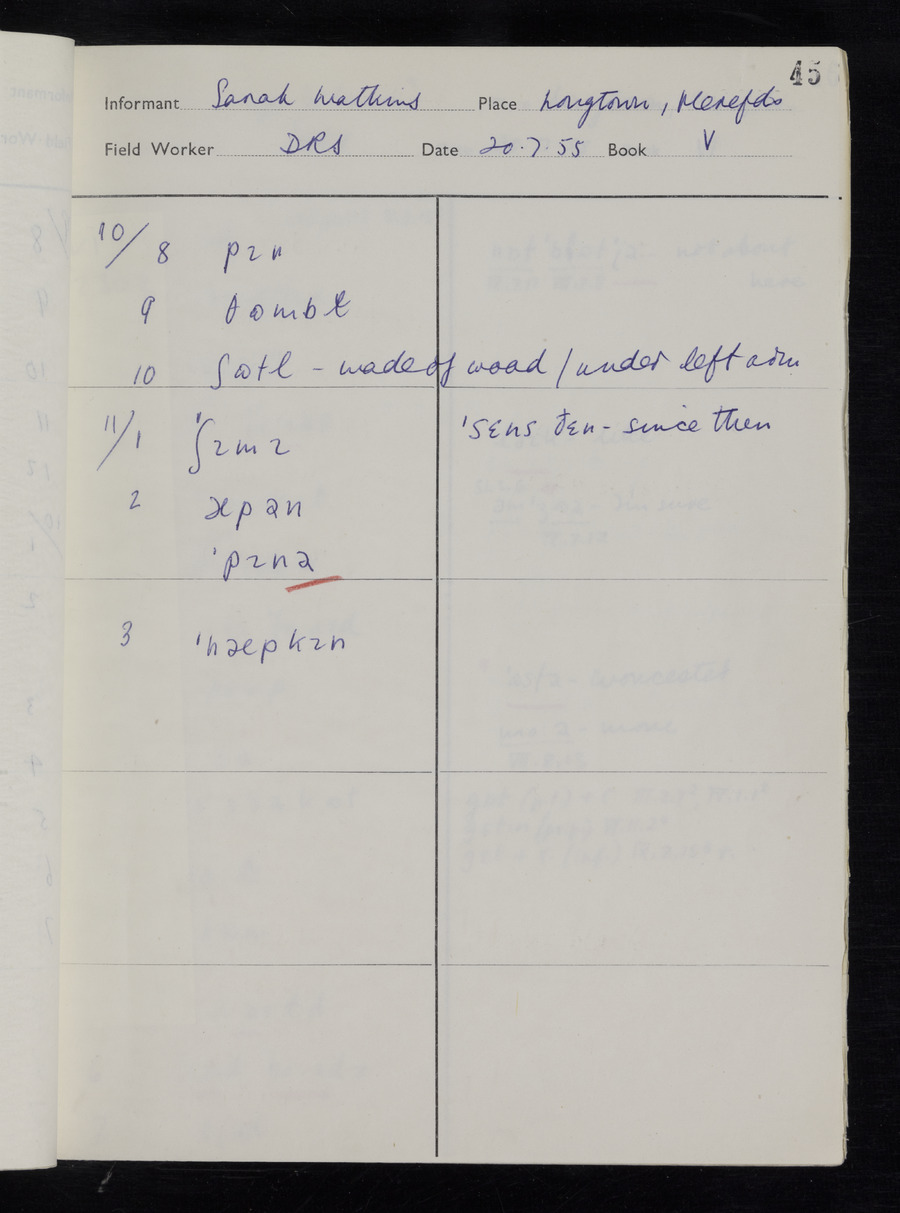 45
Informant Sarah Watkins Place Longtown, Herefds
Field Worker DRS Date 20.7.55 Book V
10/8 pɪn
9 θɑmbɫ
10 ʃɑtl – made of wood / under left arm
11/1 ˈʃɪmɪ ˈsɛns ðɛn – since then
2 æpən
ˈpɪnə
3 ˈnæpkɪn